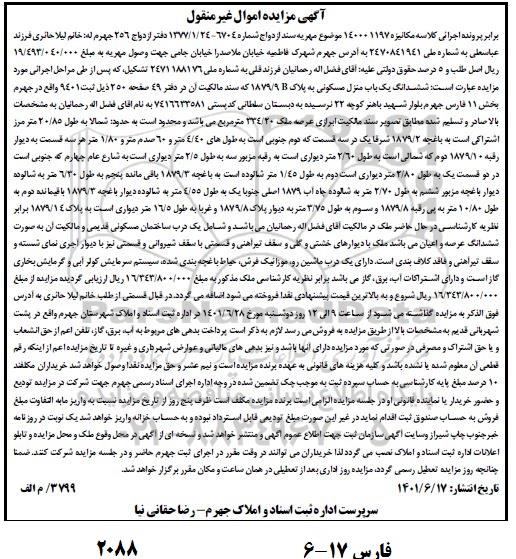 آگهی مزایده اموال غیر منقول
برابر پرونده اجرائی کلاسه مکانیزه ۱۴۰۰۰۱۱۹۷ موضوع مهریه سند ازدواج شماره ۶۷۰۴-۱۳۷۷/۱/۲۴ دفتر ازدواج ۲۵۶ جهرم له: خانم لیلا حائری فرزند
عباسعلی به شماره ملی ۲۴۷۰۸۴۱۹۴۱ به آدرس جهرم شهرک فاطمیه خیابان ملاصدرا خیابان جامی جهت وصول مهریه به مبلغ ۱۹/۴۹۳/۰۴۰/۰۰۰
ریال اصل طلب و ۵ درصد حقوق دولتی علیه: آقای فضل اله رحمانیان فرزند قلی به شماره ملی ۲۴۷۱۱۸۸۱۷۶ تشکیل، که پس از طی مراحل اجرائی مورد
مزایده عبارت است: ششدانگ یک باب منزل مسکونی به پلاک ۱۸۷۹/۹ B که سند مالکیت آن در دفتر ۴۹ صفحه ۲۵۰ ذیل ثبت ۹۴۰۱ واقع در جهرم
بخش ۱۱ فارس جهرم بلوار شهید باهنر کوچه ۲۲ نرسیده به دبستان سلطانی کدپستی ۷۴۱۶۶۳۳۵۸۱ به نام آقای فضل اله رحمانیان به مشخصات
بالا صادر و تسلیم شده مطابق تصویر سند مالکیت ابرازی عرصه ملک ۳۳۴/۲۰ مترمربع می باشد و محدود است به حدود: شمالا به طول ۲۰/۸۵ متر مرز
اشتراکی است به باغچه ۱۸۷۹/۲ شرقا یک درسه قسمت که دوم جنوبی است به طول های ۴/۴۰ متر و ۶۰ صدم متر و ۱/۸۰ متر هر سه قسمت به دیوار
رقبه ۱۸۷۹/۱۰ دوم که شمالی است به طول ۲/۶۰ متر دیواری است به رقبه مزبور سه به طول ۲/۵ متر دیواری است به شارع عام چهارم که جنوبی است
در دو قسمت یک به طول ۲/۸۰ متر دیواری است دوم به طول ۱/۴۵ متر شالوده است به باغچه ۱۸۷۹/۳ باقی مانده پنجم به طول ۶/۳۰ متر به شالوده
دیوار باغچه مزبور ششم به طول ۲/۷۰ متر به شالوده چاه آب ۱۸۷۹ اصلی جنوبا یک به طول ۴/۵۵ متر به شالوده دیوار باغچه ۱۸۷۹/۳ باقیمانده دوم به
طول ۱۰/۸۰ متر به پی رقبه ۱۸۷۹/۸ و سوم به طول ۳/۷۵ متر به دیوار پلاک ۱۸۷۹/۸ و غربا به طول ۱۶/۵ متر دیواری است به پلاک ۱۸۷۹/۱۴ برابر
نظریه کارشناسی در حال حاضر ملک در مالکیت آقای فضل اله رحمانیان می باشد و شامل یک درب ساختمان مسکونی قدیمی و مالکیت آن به صورت
ششدانگ عرصه و اعیان می باشد ملک با دیوارهای خشتی و گلی و سقف تیرآهنی و قسمتی با سقف شیروانی و قسمتی نیز با دیوار آجری نمای شسته و
سقف تیرآهنی و فاقد کلاف بندی است. دارای یک درب ماشین رو، موزائیک فرش، حیاط باغچه بندی شده، سیستم سرمایش کولر آبی و گرمایش بخاری
گاز است و دارای اشتراکات آب، برق، گاز می باشد برابر نظریه کارشناسی ملک مذکور به مبلغ ۱۶/۳۴۳/۸۰۰/۰۰۰ ریال ارزیابی گردیده مزایده از مبلغ
۱۶/۳۴۳/۸۰۰/۰۰۰ ریال شروع و به بالاترین قیمت پیشنهادی نقدا فروخته می شود اضافه می گردد. در قبال قسمتی از طلب خانم لیلا حائری به آدرس
فوق الذکر به مزایده گذاشته می شود از ساعت ۹ الی ۱۲ روز دوشنبه مورخ ۱۴۰۱/۶/۲۸ در اداره ثبت اسناد و املاک شهرستان جهرم واقع در پشت
شهربانی قدیم به مشخصات بالا از طریق مزایده به فروش می رسد لازم به ذکر است پرداخت بدهی های مربوط به آب، برق، گاز، تلفن اعم از حق انشعاب
و یا حق اشتراک و مصرفی در صورتی که مورد مزایده دارای آنها باشد و نیز بدهی های مالیاتی و عوارض شهرداری و غیره تا تاریخ مزایده اعم از اینکه رقم
قطعی آن معلوم شده یا نشده باشد و کلیه هزینه های قانونی به عهده برنده مزایده است و نیم عشر و حق مزایده نقدا وصول خواهد شد خریداران مکلفند
۱۰ درصد مبلغ پایه کارشناسی به حساب سپرده ثبت به موجب چک تضمین شده در وجه اداره اجرای اسناد رسمی جهرم جهت شرکت در مزایده تودیع
و حضور خریدار یا نماینده قانونی او در جلسه مزایده الزامی است برنده مزایده مکلف است ظرف پنج روز از تاریخ مزایده نسبت به واریز مابه التفاوت مبلغ
فروش به حساب صندوق ثبت اقدام نماید در غیر این صورت مبلغ تودیعی قابل استرداد نبوده و به حساب خزانه واریز خواهد شد یک نوبت در روزنامه
خبرجنوب چاپ شیراز وسایت آگهی سازمان ثبت جهت اطلاع عموم آگهی و منتشر خواهد شد و نسخه ای از آگهی در محل وقوع ملک و محل مزایده و تابلو
اعلانات اداره ثبت اسناد و املاک نصب می گردد لذا خریداران می توانند در وقت مقرر در اجرای ثبت جهرم حاضر و در جلسه مزایده شرکت کنند. ضمنا
چنانچه روز مزایده تعطیل رسمی گردد، مزایده روز اداری بعد از تعطیلی در همان ساعت و مکان مقرر برگزار خواهد شد.
تاریخ انتشار: ۱۴۰۱/۶/۱۷
۳۷۹۹/م الف
سرپرست اداره ثبت اسناد و املاک جهرم – رضا حقانی نیا
فارس ۱۷-۶
۲۰۸۸